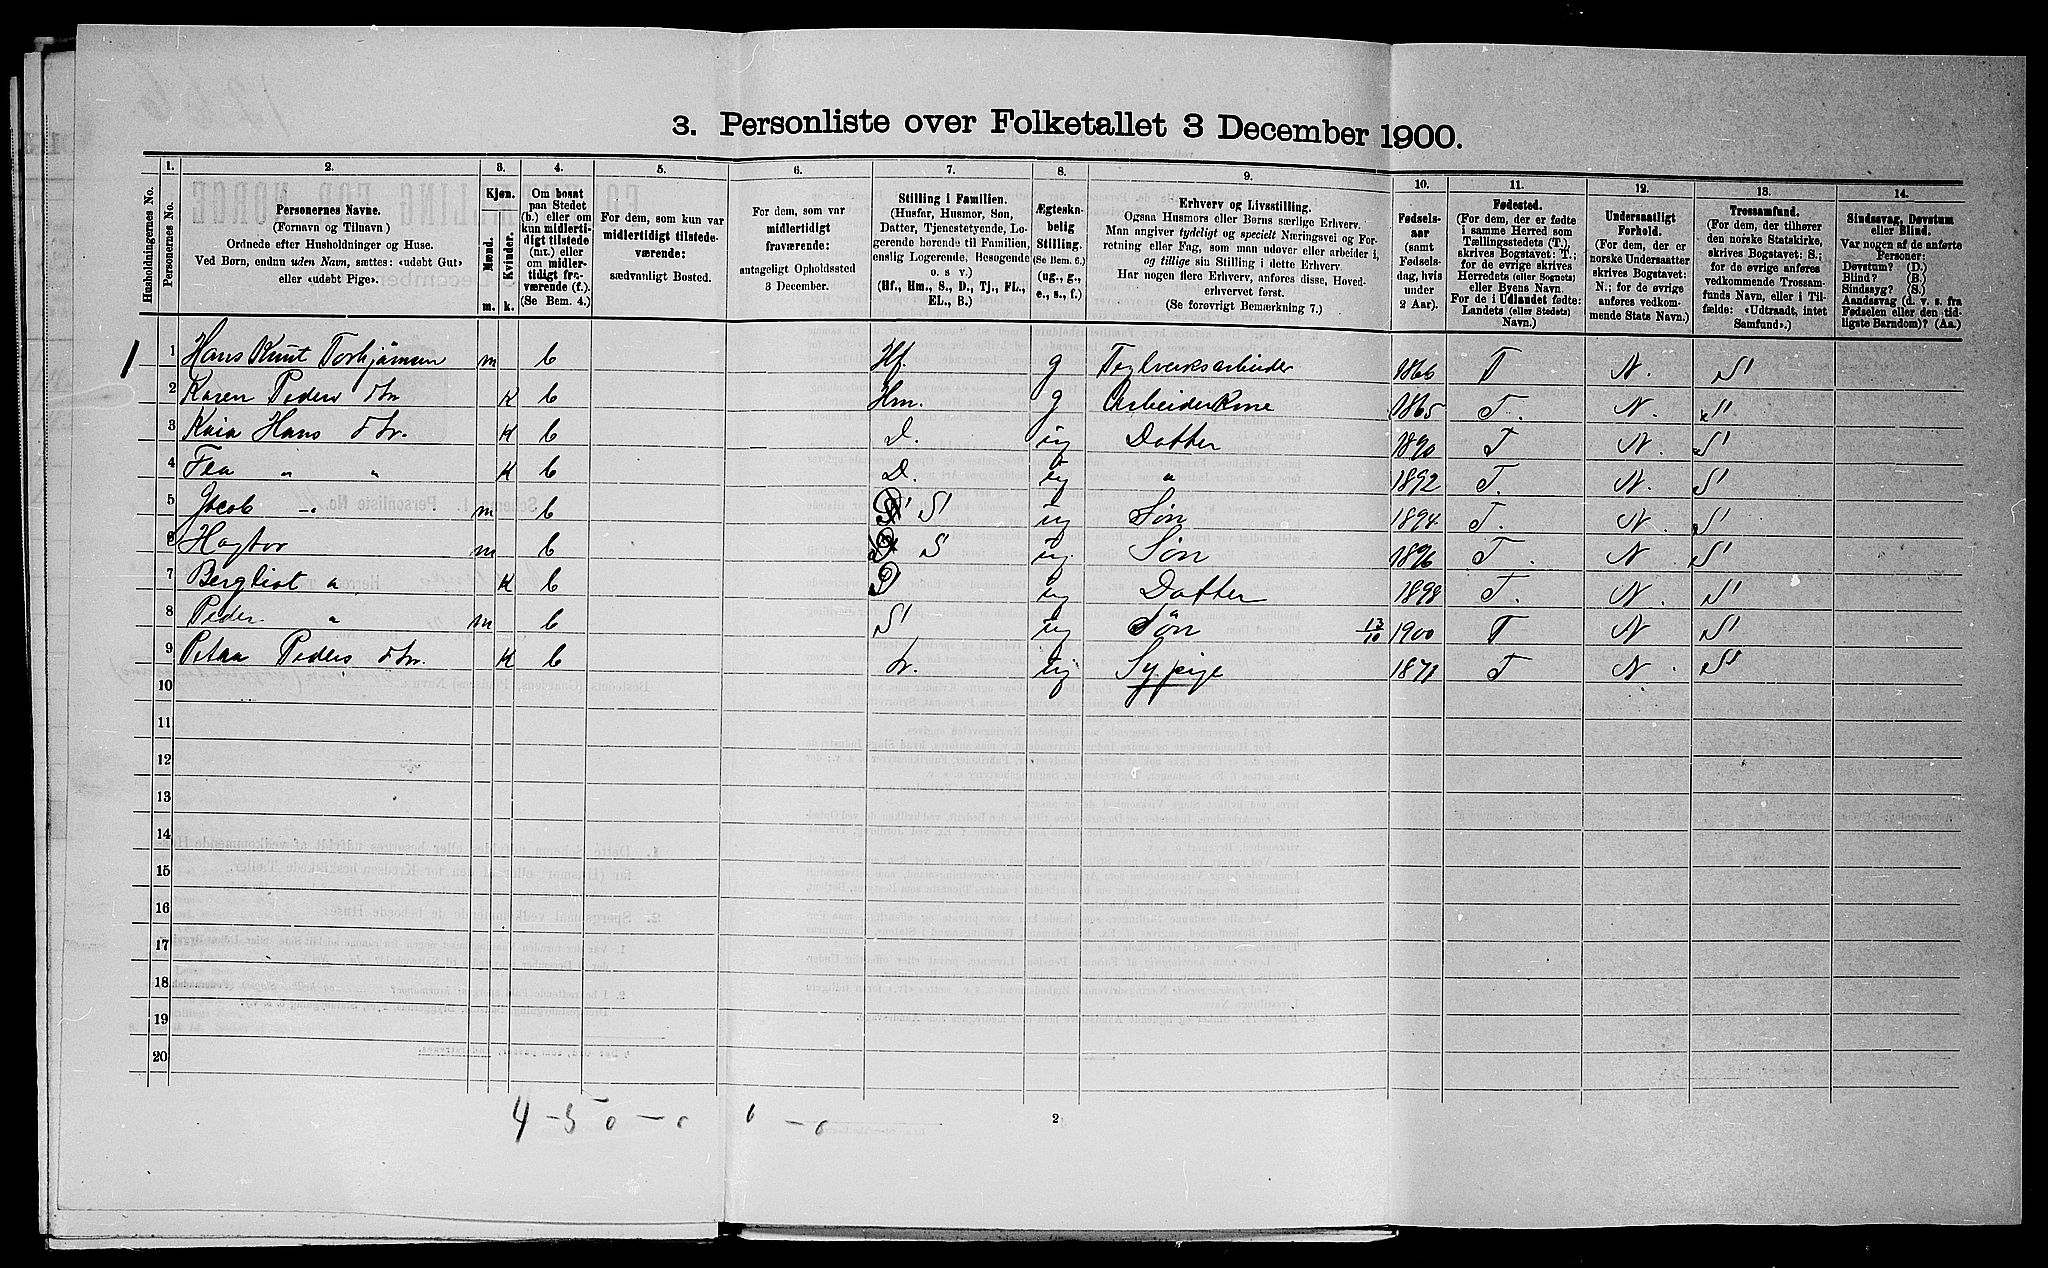 3. Personliste over Folketallet 3 December 1900.
Husholdningernes No.
1. Personernes No.
2. Personernes Navne.
(Fornavn og Tilnavn)
Ordnede efter Husholdninger og Huse.
Ved Børn, endnu uden Navn, sættes: «udøbt Gut»
eller «udøbt Pige».
3. Kjøn.
Mænd. Kvinder.
m. k.
4. Om bosat
paa Stedet
(b.) eller om
kun midler-
tidigt tilstede
(mt.) eller
om midler-
tidigt fra-
værende (f.).
(Se Bem. 4.)
5. For dem, som kun var
midlertidigt tilstede-
værende:
sædvanligt Bosted.
6. For dem, som var
midlertidigt
fraværende:
antageligt Opholdssted
3 December.
7. Stilling i Familien.
(Husfar, Husmor, Søn,
Datter, Tjenestetyende, Lo-
gerende hørende til Familien,
enslig Logerende, Besøgende
o. s v.)
(Hf., Hm., S., D., Tj., FL.,
EL., B.)
8. Ægteska-
belig
Stilling.
(Se Bem. 6.)
(ug., g.,
e., s., f.)
9. Erhverv og Livsstilling.
Ogsaa Husmors eller Børns særlige Erhverv.
Man angiver tydeligt og specielt Næringsvei og For-
retning eller Fag, som man udøver eller arbeider i,
og tillige sin Stilling i dette Erhverv.
Har nogen flere Erhverv, anføres disse, Hoved-
erhvervet først.
(Se forøvrigt Bemærkning 7.)
10. Fødsels-
aar
(samt
Fødsels-
dag, hvis
under
2 Aar).
11. Fødested.
(For dem, der er fødte
i samme Herred som
Tællingsstedets (T.),
skrives Bogstavet: T.;
for de øvrige skrives
Herredets (eller Sognets)
eller Byens Navn.
For de i Udlandet fødte:
Landets (eller Stedets)
Navn.)
12. Undersaatligt
Forhold.
(For dem, der er
norske Undersaatter
skrives Bogstavet:
N.; for de øvrige
anføres vedkom-
mende Stats Navn.)
13. Trossamfund.
(For dem, der tilhører
den norske Statskirke,
skrives Bogstavet: S.;
for de øvrige anføres
vedkommende Trossam-
funds Navn, eller i Til-
fælde: «Udtraadt, intet
Samfund».)
14. Sindssvag, Døvstum
eller Blind.
Var nogen af de anførte
Personer:
Døvstum? (D.)
Blind? (B.)
Sindssyg? (S.)
Aandssvag (d. v. s. fra
Fødselen eller den tid-
ligste Barndom)? (Aa.)
1 1 Hans Knut Torbjørnsen m b Hf. g Teglverksarbeider 1866 T N. S
2 Karen Peders dtr k b Hm. g Arbeiderkone 1865 T. N. S
3 Kaia Hans dtr. k b D. ug Datter 1890 T N. S
4 Fea " " k b D. ug " 1892 T. N. S
5 Jacob " m b S ug Søn 1894 T. N. S
6 m b S ug. Søn 1896 T. N S
7 Bergliot " k b D ug Datter 1898 T. N. S
8 Peder " m b S ug Søn 13/10 1900 T N S
9 Peders dtr. k b ug Sypige 1871 T N. S
10
11
12
13
14
15
16
17
18
19
20
4 - 5 0 - 0 0 - 0
2